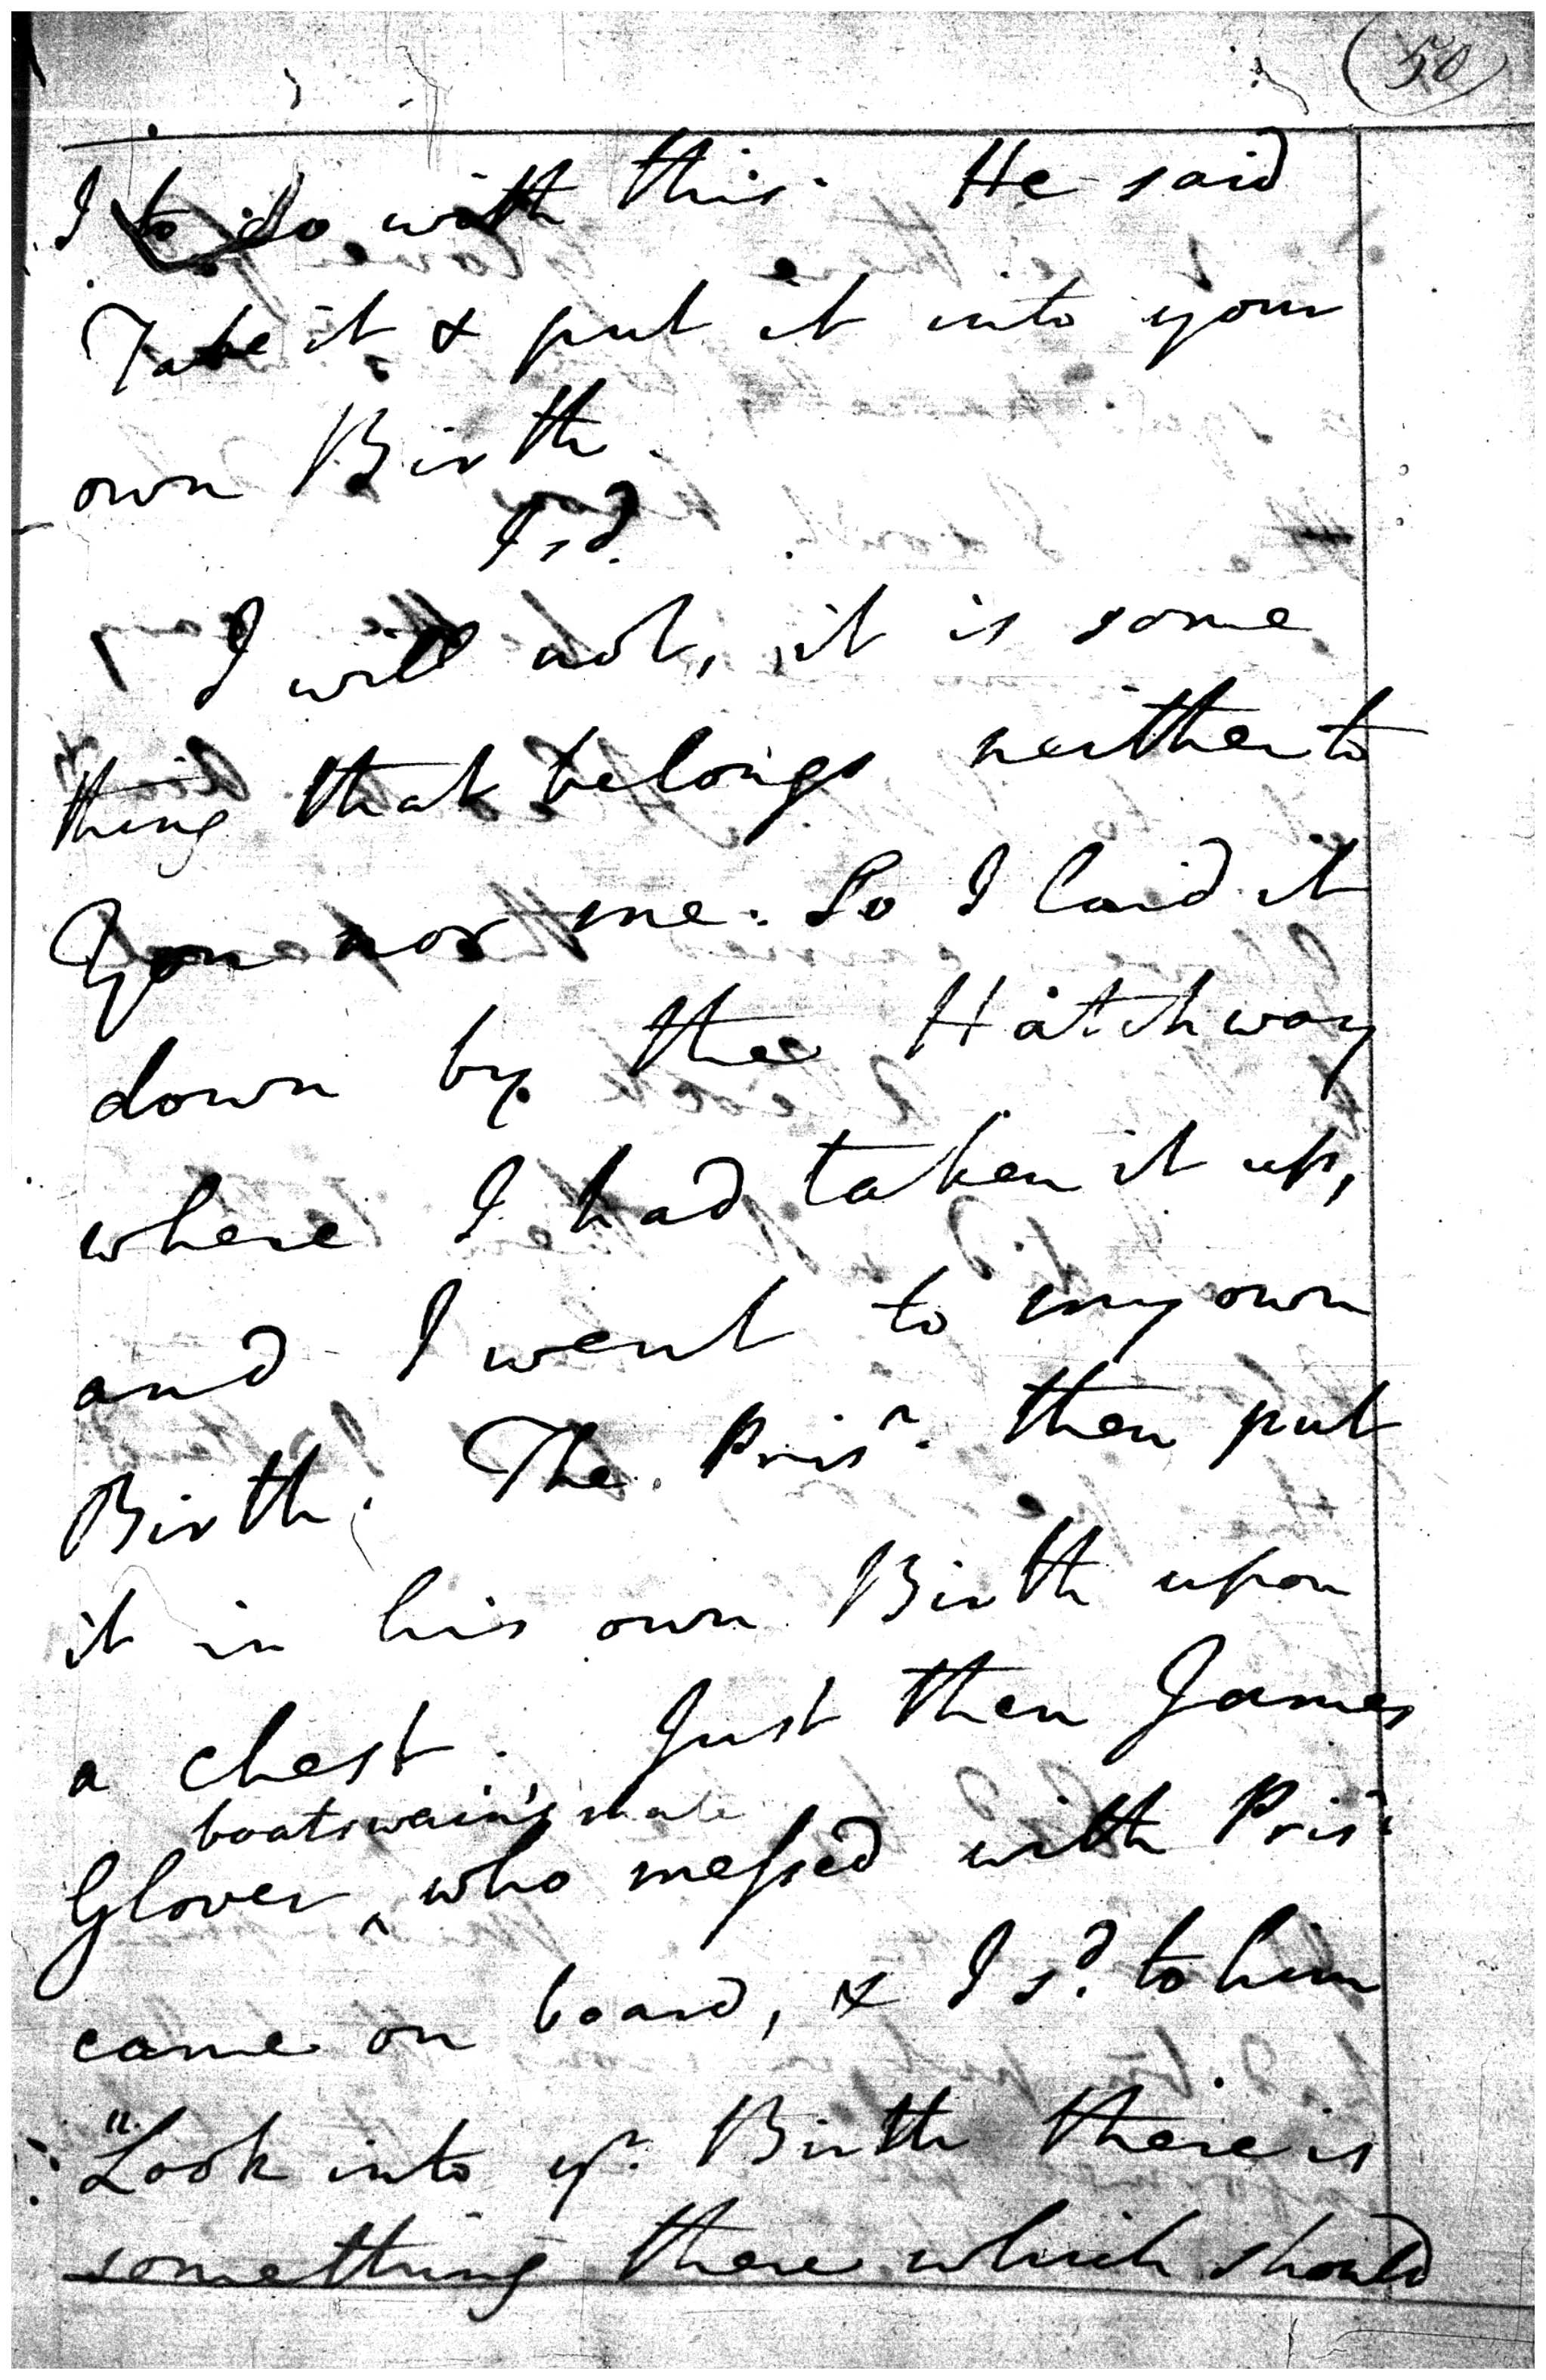 (50)
I to do with this. He said
Take it & put it into your
own Birth.
I sd.
I will not, it is some
thing that belongs neither to
You nor me. So I laid it
down by the Hatchway
where I had taken it up,
and I went to my own
Birth. The Prisr. then put
it in his own Birth upon
a chest. Just then James
boatswain's mate
Glover ^ who messed with Prisr.
came on board, & I sd. to him
"Look into yr. Birth there is
something there which should